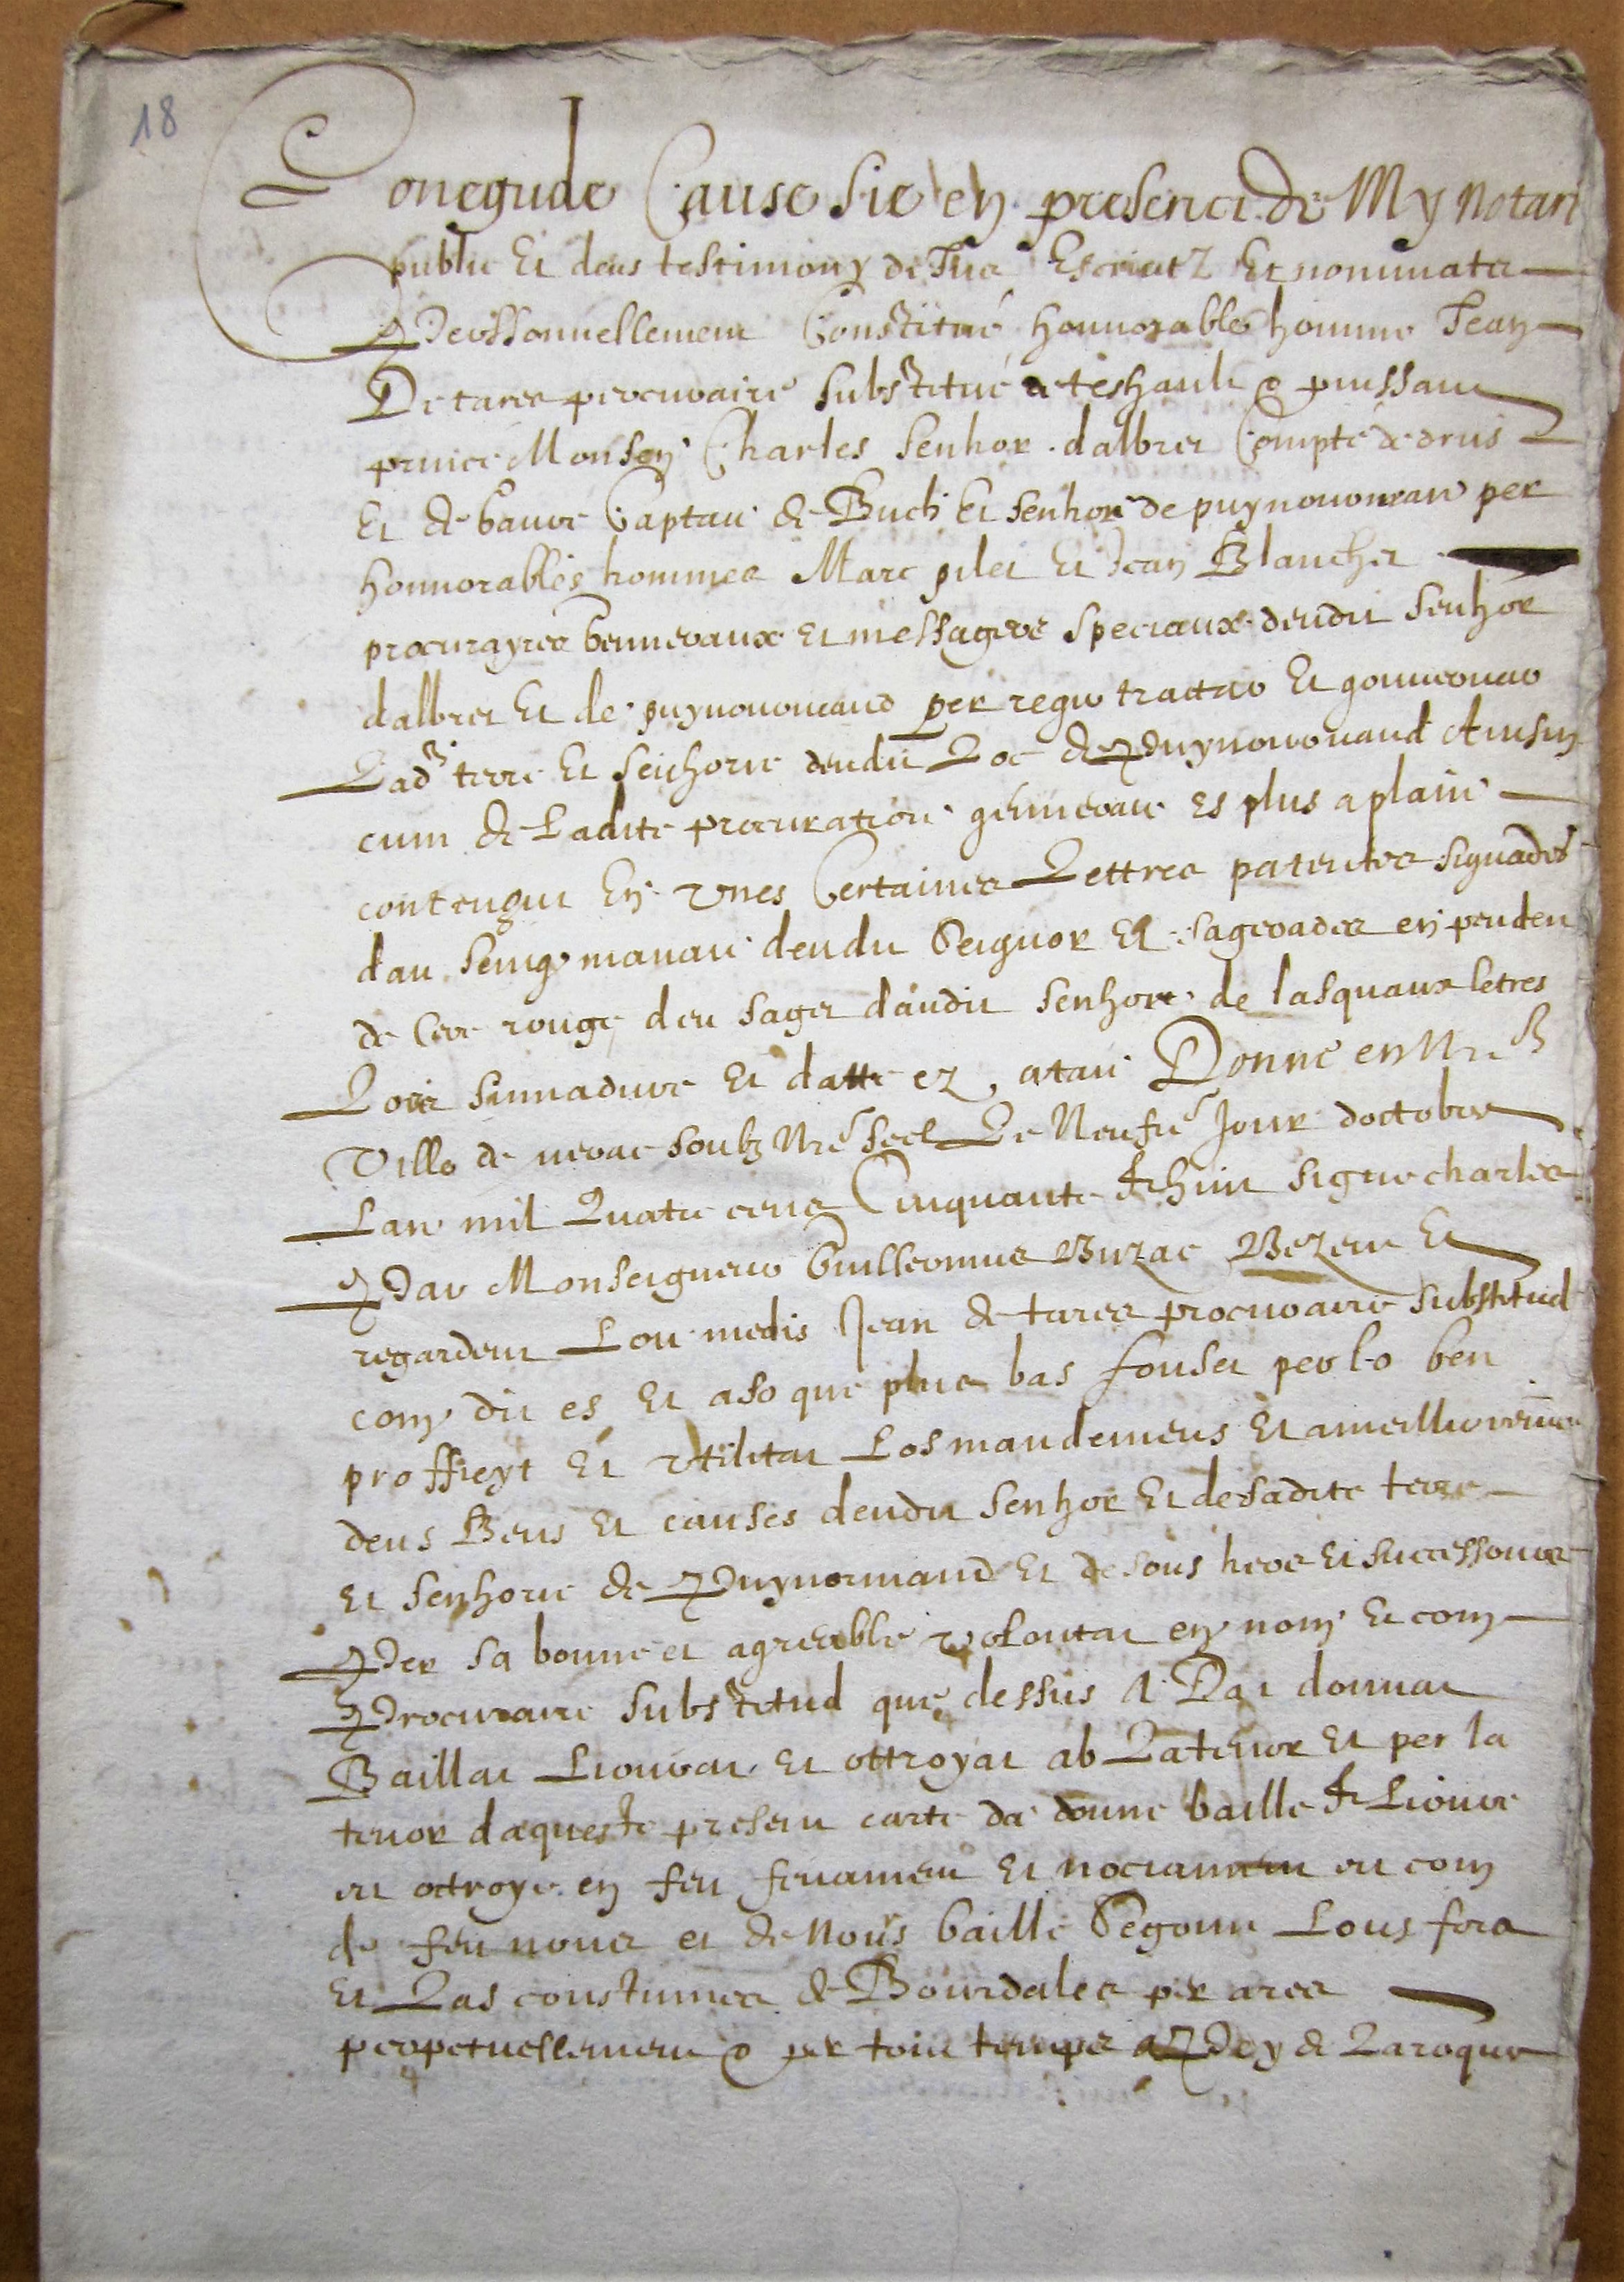 18
Conegude Cause sie en presenci de My Notari
public Et deus testimony de Jus Escriutz Et nommatz
Personnellement Constitué honnorable homme Jean
De tares procuraire substitué de teshault & puissant
prince Monsen Charles senhor dalbret Compte de drus
Et de Captau de Buch Et senhor de puynormand per
honnorables hommes Marc pilet Et Jean Blanchet
procurayres Genneraux Et messagers speciaux deudit senhor
dalbret Et de puynormand per regir trattar Et gouvernar
Lad terre Et seichorie deudit Loc de Puynormand Ainsin
cum de Ladite procuration gennerau es plus a plain
contengut En Unes Certaines Lettres patentes signades
dau seing manau deudit Seignor Et sagerades en penden
de Cere rouge deu saget daudit senhor de lasquaux letres
Lour sinnadure Et datte ez atau Donné en Nre
Ville de nerac soubz Nre seel Le Neufie Jour doctobre
Lan mil Quatre cens Cinquante & huit signe charles
Par Monseigneur Guillermus Buzac Et
regardent Lou medis Jean de tares procuraire substitud
com dit es Et aso que plus bas per lo ben
proffieyt Et Utilitat Los mandemens Et ameilluremens
deus Bens Et causes deudit senhor Et de sadite terre
Et senhorie de Puynormand Et de sous hers Et successours
Per sa bonne et agreable volontat en nom Et com
Procuraire substitud que dessus A Dat donnat
Baillat Liourat Et ottroyat ab La tenor Et per la
tenor daqueste present carte da donne baille & Lioure
et octroye en feu feuament Et nociament et com
de feu nous et de Nous baille Segont Lous fors
Et Las constumes de Bourdales per ares
perpetuellement & per tout temps a Pey de Laroque